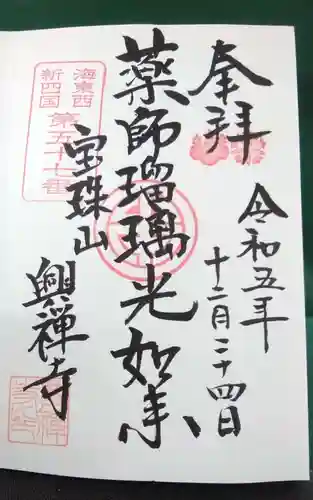 奉拝
令和五年
十二月二十四日
薬師瑠璃光如来
海東西
新四国
第五十七番
宝珠山
興禅寺